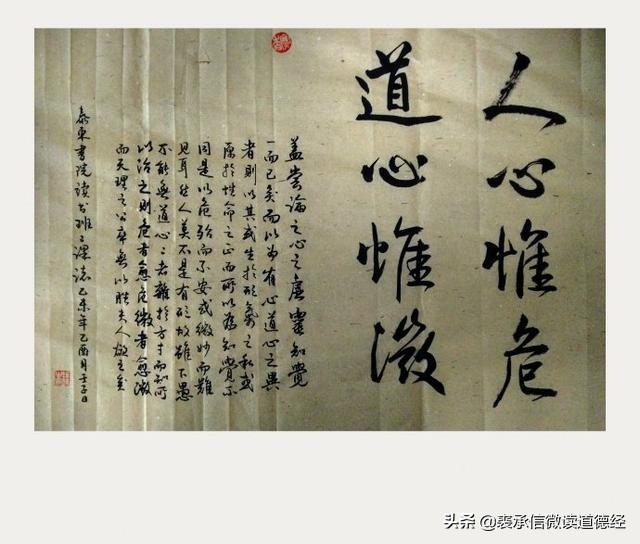 人心惟危
道心惟微
蓋嘗論之心之虛靈知覺
一而已矣而以為有心道心之異
者則以其或生於形氣之私或
原於性命之正而所以為知覺不
同是以危殆而不安或微妙而難
見耳然人莫不是有形故雖下愚
不能無道心二者雜於方寸而知所
以治之則危者愈危微者愈微
而天理之公卒無以勝夫人欲之矣
泰東書院读书班之課誌乙未年乙酉月壬子日
头条 @裴承信微读道德经